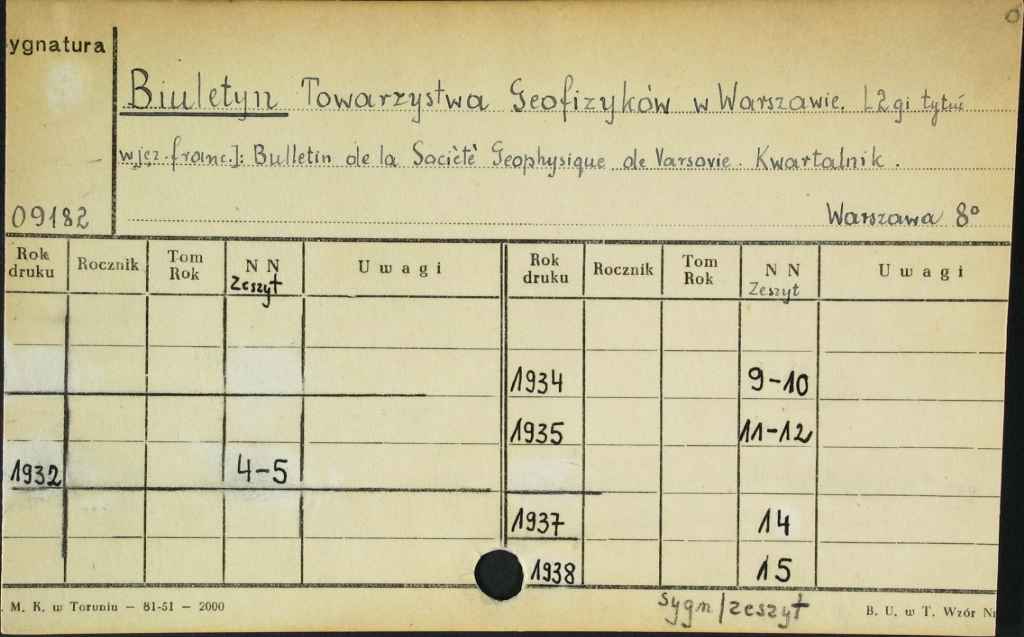 ygnatura
Biuletyn Towarzystwa Geofizyków w Warszawie. [2gi tytuł
w jęz. franc.]: Bulletin de la Sociètè Geophysique de Varsovie. Kwartalnik.
09182 Warszawa 8°
Rok druku Rocznik Tom Rok N N Zeszyt Uwagi Rok druku Rocznik Tom Rok N N Zeszyt Uwagi
1934 9-10
1935 11-12
1932 4-5
1937 14
1938 15
M. K. w Toruniu — 81-51 — 2000 sygn/zeszyt B. U. w T. Wzór Nr